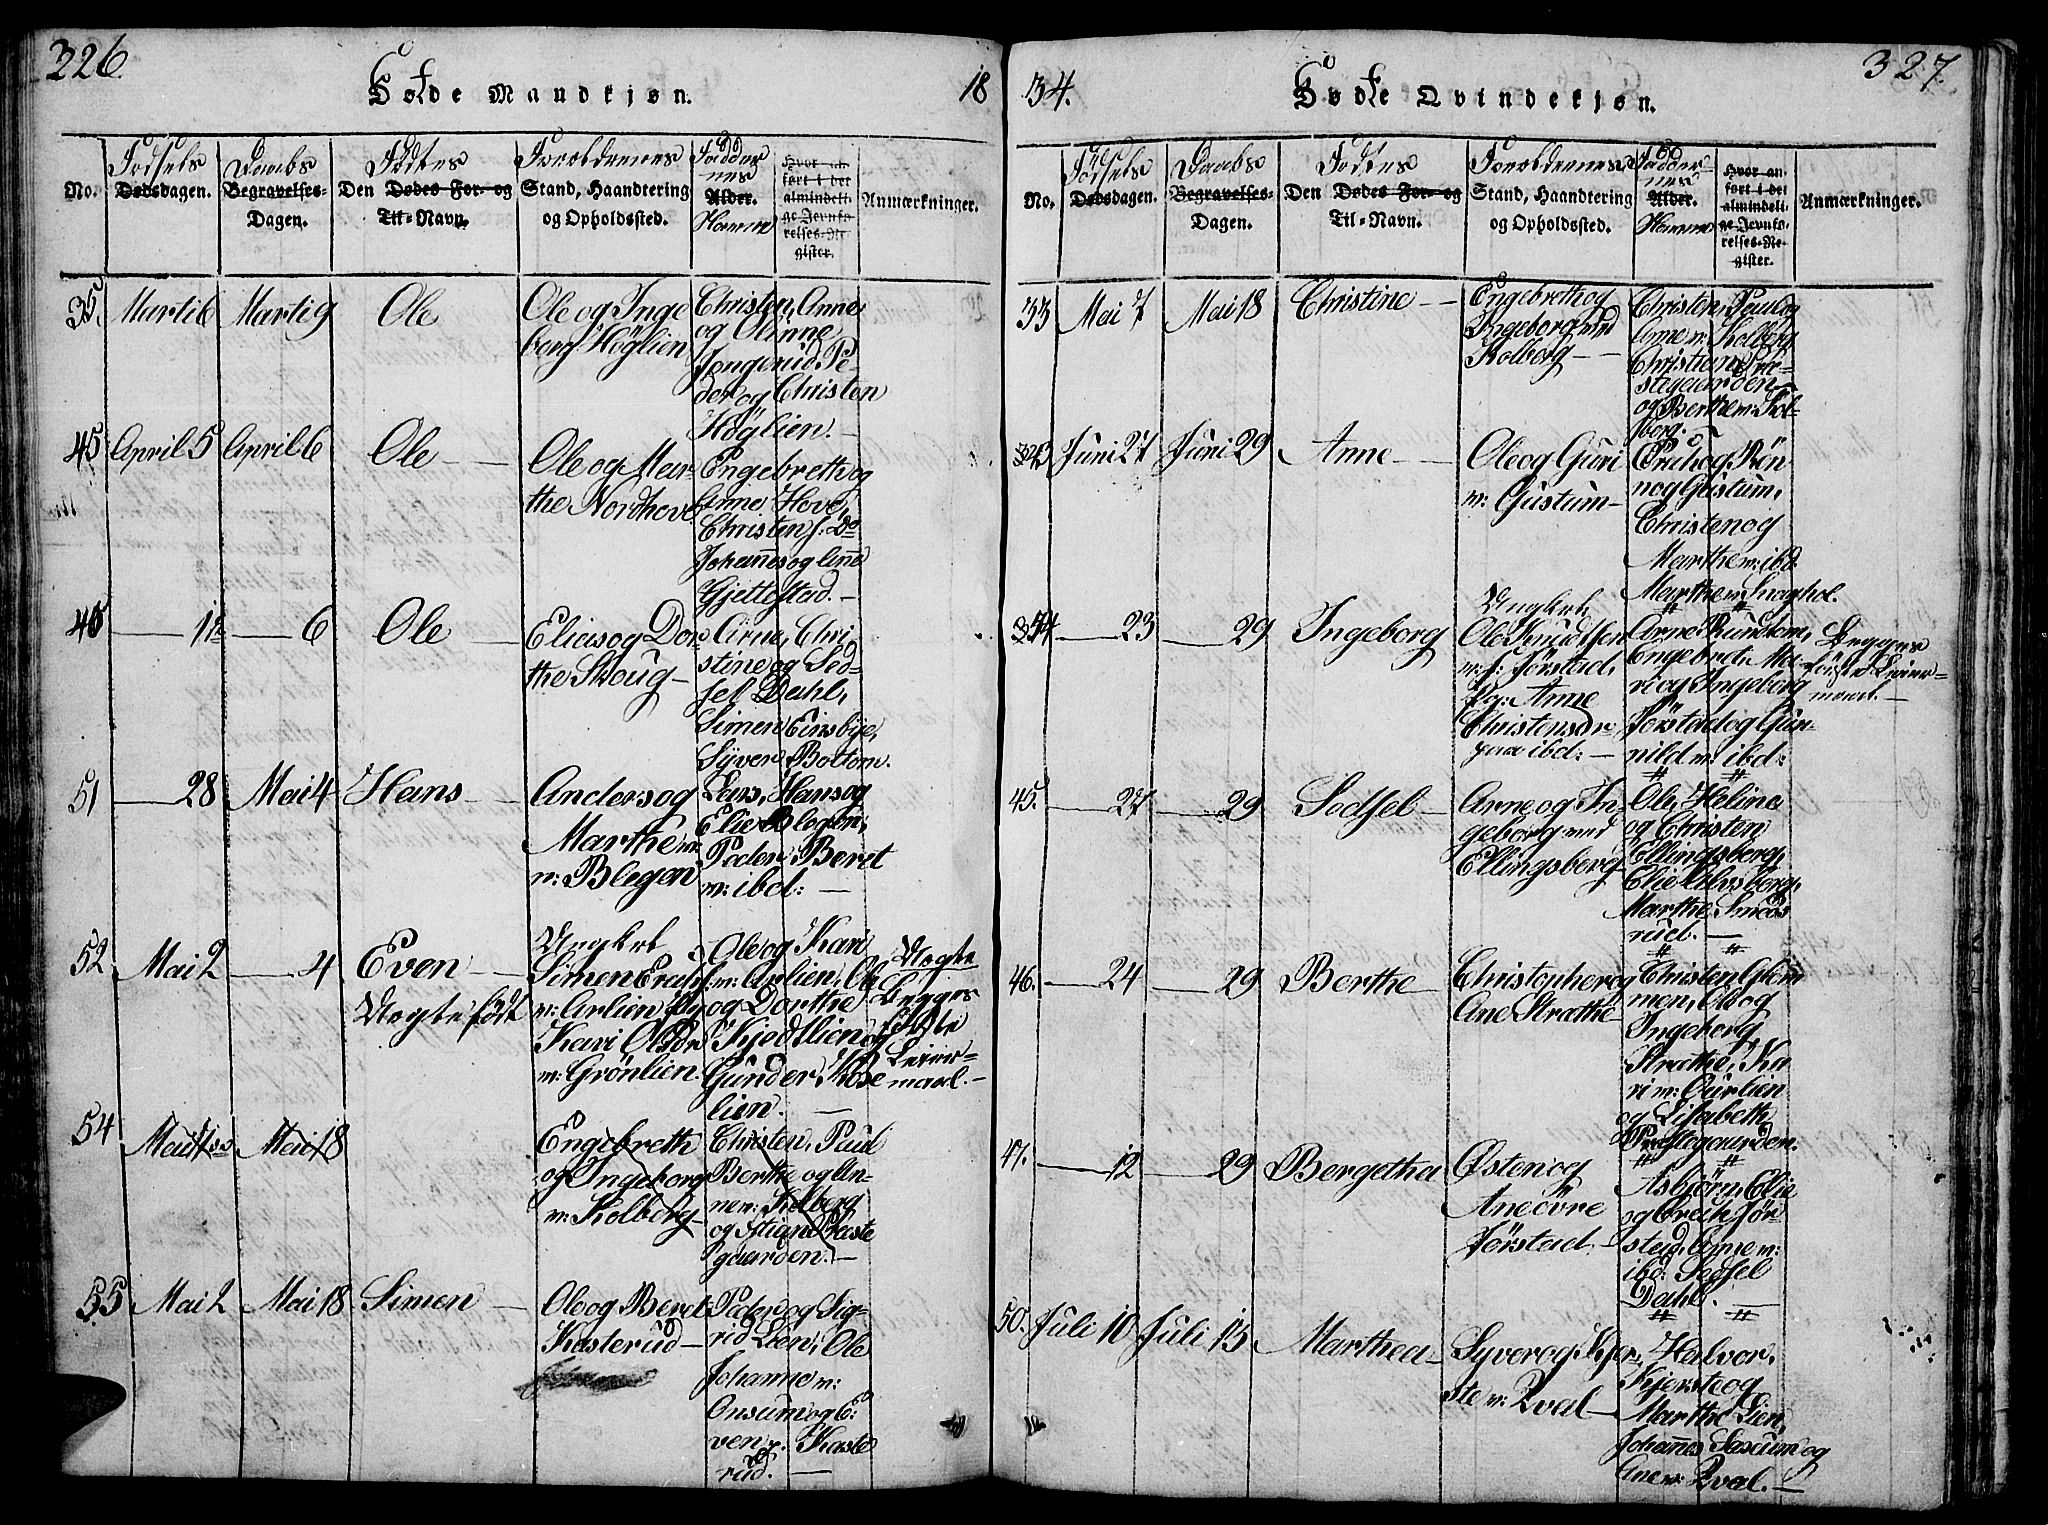 326.
Døde Mandkjøn.
18
No.
Fødsels
Dødsdagen.
Daabs
Begravelses-
Dagen.
Fødtes
Den Dødes For- og
Til-Navn.
Forældrenes
Stand, Haandtering
og Opholdssted.
Faddernes
Alder.
Hvor an-
ført i det
almindeli-
ge Jevnfø-
relses-Re-
gister.
Anmærkninger.
35.
Marti 6
Marti 9
Ole
Ole og Inge
borg Höglien
Christen, Anne
og Olinne
Jongerud, Pe-
der og Christen
Höglien.
45
April 5
April 6
Ole
Ole og Mar-
the Nordhove
Engebreth og
Anne Hove,
Christen f. Do
Johannes og Anne
Gjettestad.
46
6
Ole
Elias og Dor
the Skoug
Arne, Chri
stine og Sed-
sel Dahl,
Simen Einsbye,
Syver Bottom.
51
28
Mai 4
Hans
Anders og
Marthe
Blegen
Lars, Hans og
Elie Blegen,
Peder, Beret
m: ibd:
52.
Mai 2
4
Even
Nogtefödt
Ungkrl
Simen Erichs.
m: Arlien
Kari Olsdr
m: Grönlien.
Ole og Kari
m: Arlien, Ole
og Dorthe
Kjodtlien og
Gunder Rose
lien.
Begges
förste
Leier-
maal.
54
Mai 18
Engebreth
og Ingeborg
m: Kolberg
Christen, Paul
Berthe og An-
ne m: Kolberg
og Stian Præste
gaarden.
55
Mai 2
Mai 18
Simen
Ole og Beret
Kasterud
Peder og Sig-
rid Lien, Ole
Johanne m:
Onsum og E-
ven Kaste
rud.
34.
327.
Døde Qvindekjøn.
No.
Fødsels
Dødsdagen.
Daabs
Begravelses-
Dagen.
Fødtes
Den Dødes For- og
Til-Navn.
Forældrenes
Stand, Haandtering
og Opholdssted.
Faddernes
Alder.
Hvor an-
ført i det
almindeli-
ge Jevnfø-
relses-Re-
gister.
Anmærkninger.
33
Mai 7
Mai 18
Christine
Engebreth og
Ingeborg med
Kolberg
Christen, Paul og
Anne m: Kolberg
Christian Præ-
stegaarden
og Berthe m: Kol-
berg.
Juni 27
Juni 29
Anne
Ole og Guri
m: Gustum
Erich og Rön-
nog Gustum,
Christen og
Marthe m: ibd.
Marthe m: Snoghol.
23
29
Ingeborg
Ungkrl
Ole Knudtsen
m: f: Jörstad,
Pg: Anne
Christensdr
ibd:
Arne Rundtom,
Engebret, Ma-
ri og Ingeborg
Jörstad og Gun-
nild m: ibd:
Begges
förste Leier-
maal.
45.
27
29
Sedsel
Arne og In-
geborg med
Ellingsberg
Ole, Heline
og Christen
Ellingsberg,
Elie Ulvsberg,
Marthe Smeds
rud.
46.
24
29
Berthe
Christopher og
Ane Stræthe
Christen Glem
men, Ole og
Ingeborg
Stræthe, Ka
ri m: Ourlien
og Lisabeth
Præstegaarden.
47.
12
29
Bergetha
Østen og
Ane övre
Jörstad
Asbjörn, Elie
og Erich Jör-
stad, Anne m:
ibd: Sedsel
Dahl.
50.
Juli 10
Juli 13
Marthea
Syver og Kjer-
ste m: Qval
Halvor,
Kjerste og
Marthe Lien,
Johannes Saxum og
Ane m: Qval.